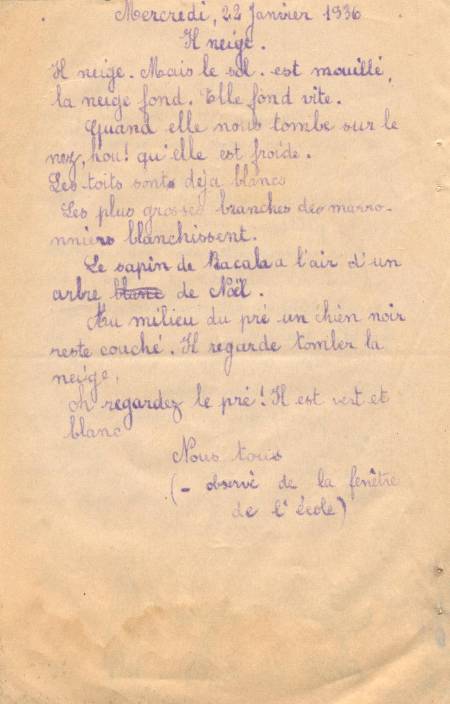 Mercredi, 22 Janvier 1936
Il neige.
Il neige. Mais le sol. est mouillé,
la neige fond. Elle fond vite.
Quand elle nous tombe sur le
nez, hou! qu'elle est froide.
Les toits sont déja blancs
Les plus grosses branches des marro-
nniers blanchissent.
Le sapin de Bacala a l'air d'un
arbre blanc de Noël.
Au milieu du pré un chien noir
reste couché. Il regarde tomber la
neige.
oh regardez le pré! Il est vert et
blanc
Nous tous
(- observé de la fenêtre
de l'école)